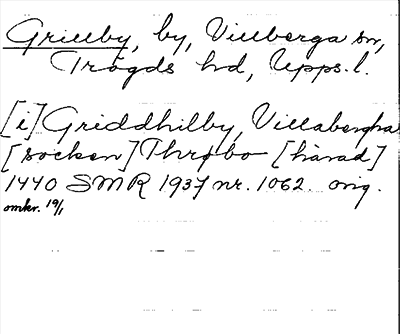 Grillby, by, Villberga sn,
Trögds hd, Upps.l.
[i] Griddhilby, Villabergha
[socken] Thrøbo [härad]
1440 SMR 1937 nr. 1062. orig.
omkr. 19/1